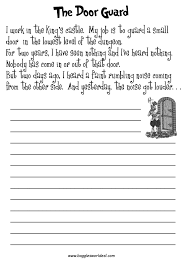 The Door Guard
I work in the King's castle. My job is to guard a small
door in the lowest level of the dungeon.
For two years, I have seen nothing and I've heard nothing.
Nobody has come in or out of that door.
But two days ago, I heard a faint rumbling noise coming
from the other side. And yesterday, the noise got louder. . .